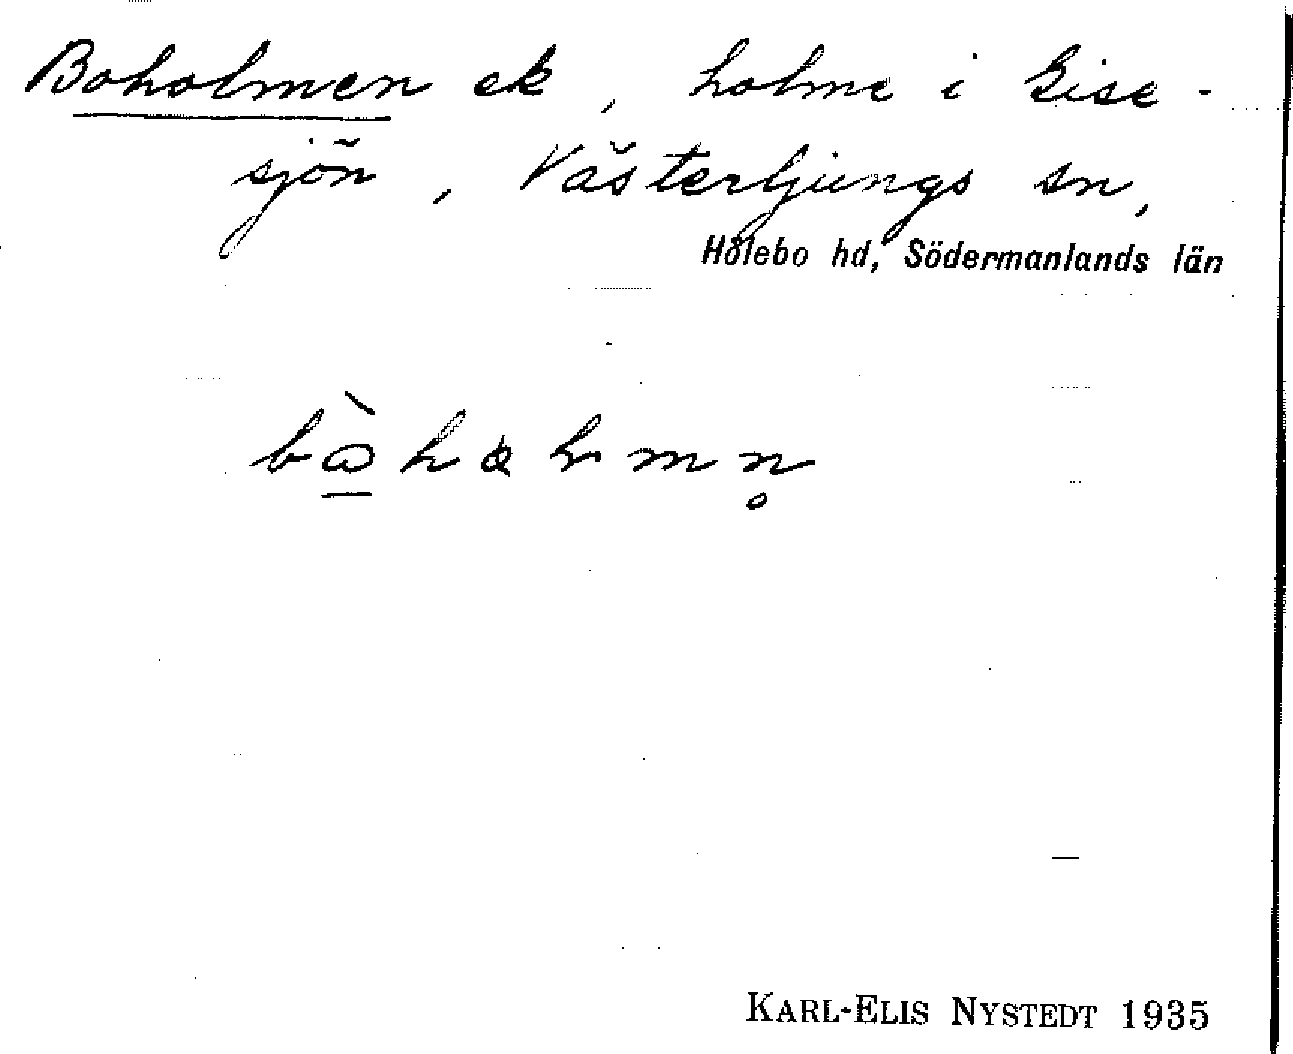 Boholmen ek, holme i Gise-
sjön, Västerljungs sn,
Hölebo hd, Södermanlands län
KARL-ELIS NYSTEDT 1935